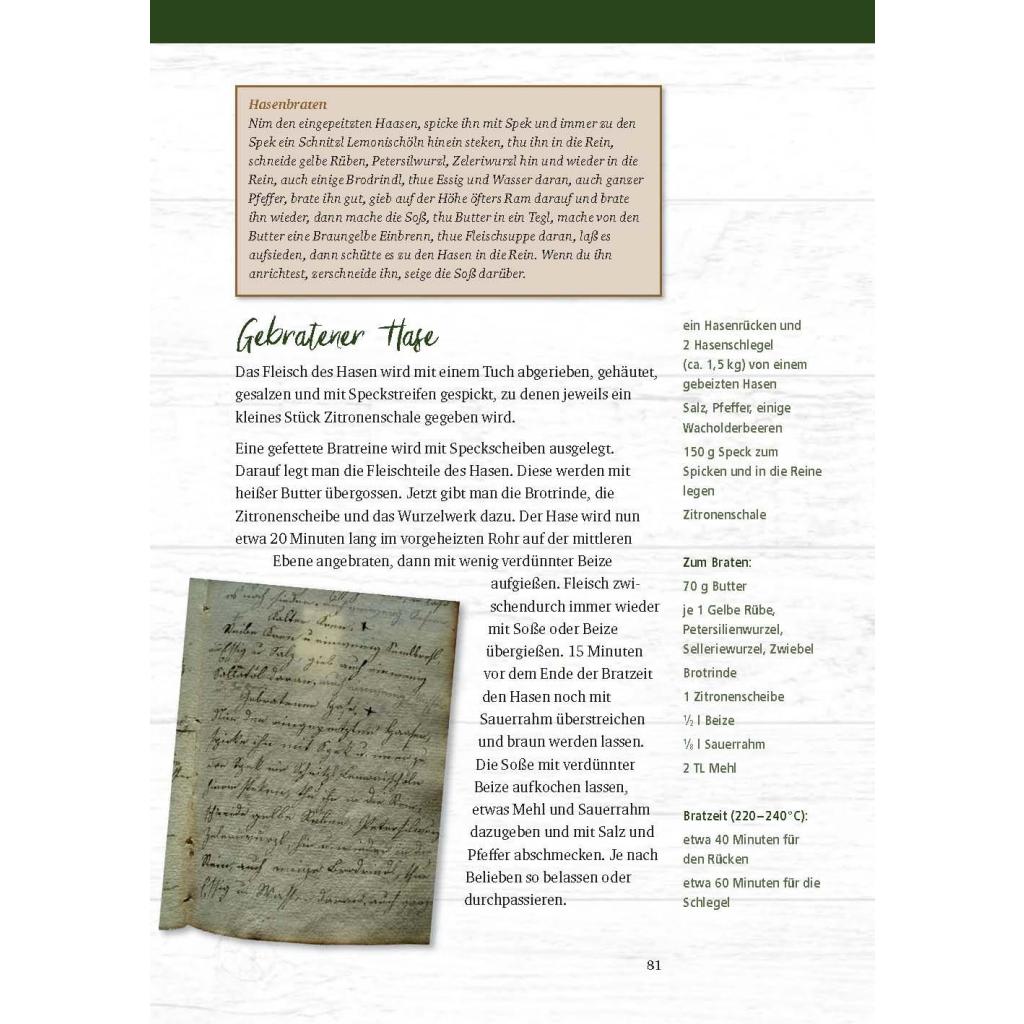 Hasenbraten
Nim den eingepeitzten Haasen, spicke ihn mit Spek und immer zu den
Spek ein Schnitzl Lemonischöln hinein steken, thu ihn in die Rein,
schneide gelbe Rüben, Petersilwurzl, Zeleriwurzl hin und wieder in die
Rein, auch einige Brodrindl, thue Essig und Wasser daran, auch ganzer
Pfeffer, brate ihn gut, gieb auf der Höhe öfters Ram darauf und brate
ihn wieder, dann mache die Soß, thu Butter in ein Tegl, mache von den
Butter eine Braungelbe Einbrenn, thue Fleischsuppe daran, laß es
aufsieden, dann schütte es zu den Hasen in die Rein. Wenn du ihn
anrichtest, zerschneide ihn, seige die Soß darüber.
Gebratener Hase
Das Fleisch des Hasen wird mit einem Tuch abgerieben, gehäutet,
gesalzen und mit Speckstreifen gespickt, zu denen jeweils ein
kleines Stück Zitronenschale gegeben wird.
Eine gefettete Bratreine wird mit Speckscheiben ausgelegt.
Darauf legt man die Fleischteile des Hasen. Diese werden mit
heißer Butter übergossen. Jetzt gibt man die Brotrinde, die
Zitronenscheibe und das Wurzelwerk dazu. Der Hase wird nun
etwa 20 Minuten lang im vorgeheizten Rohr auf der mittleren
Ebene angebraten, dann mit wenig verdünnter Beize
aufgießen. Fleisch zwi-
schendurch immer wieder
mit Soße oder Beize
übergießen. 15 Minuten
vor dem Ende der Bratzeit
den Hasen noch mit
Sauerrahm überstreichen
und braun werden lassen.
Die Soße mit verdünnter
Beize aufkochen lassen,
etwas Mehl und Sauerrahm
dazugeben und mit Salz und
Pfeffer abschmecken. Je nach
Belieben so belassen oder
durchpassieren.
ein Hasenrücken und
2 Hasenschlegel
(ca. 1,5 kg) von einem
gebeizten Hasen
Salz, Pfeffer, einige
Wacholderbeeren
150 g Speck zum
Spicken und in die Reine
legen
Zitronenschale
Zum Braten:
70 g Butter
je 1 Gelbe Rübe,
Petersilienwurzel,
Selleriewurzel, Zwiebel
Brotrinde
1 Zitronenscheibe
½ l Beize
⅛ l Sauerrahm
2 TL Mehl
Bratzeit (220–240°C):
etwa 40 Minuten für
den Rücken
etwa 60 Minuten für die
Schlegel
81